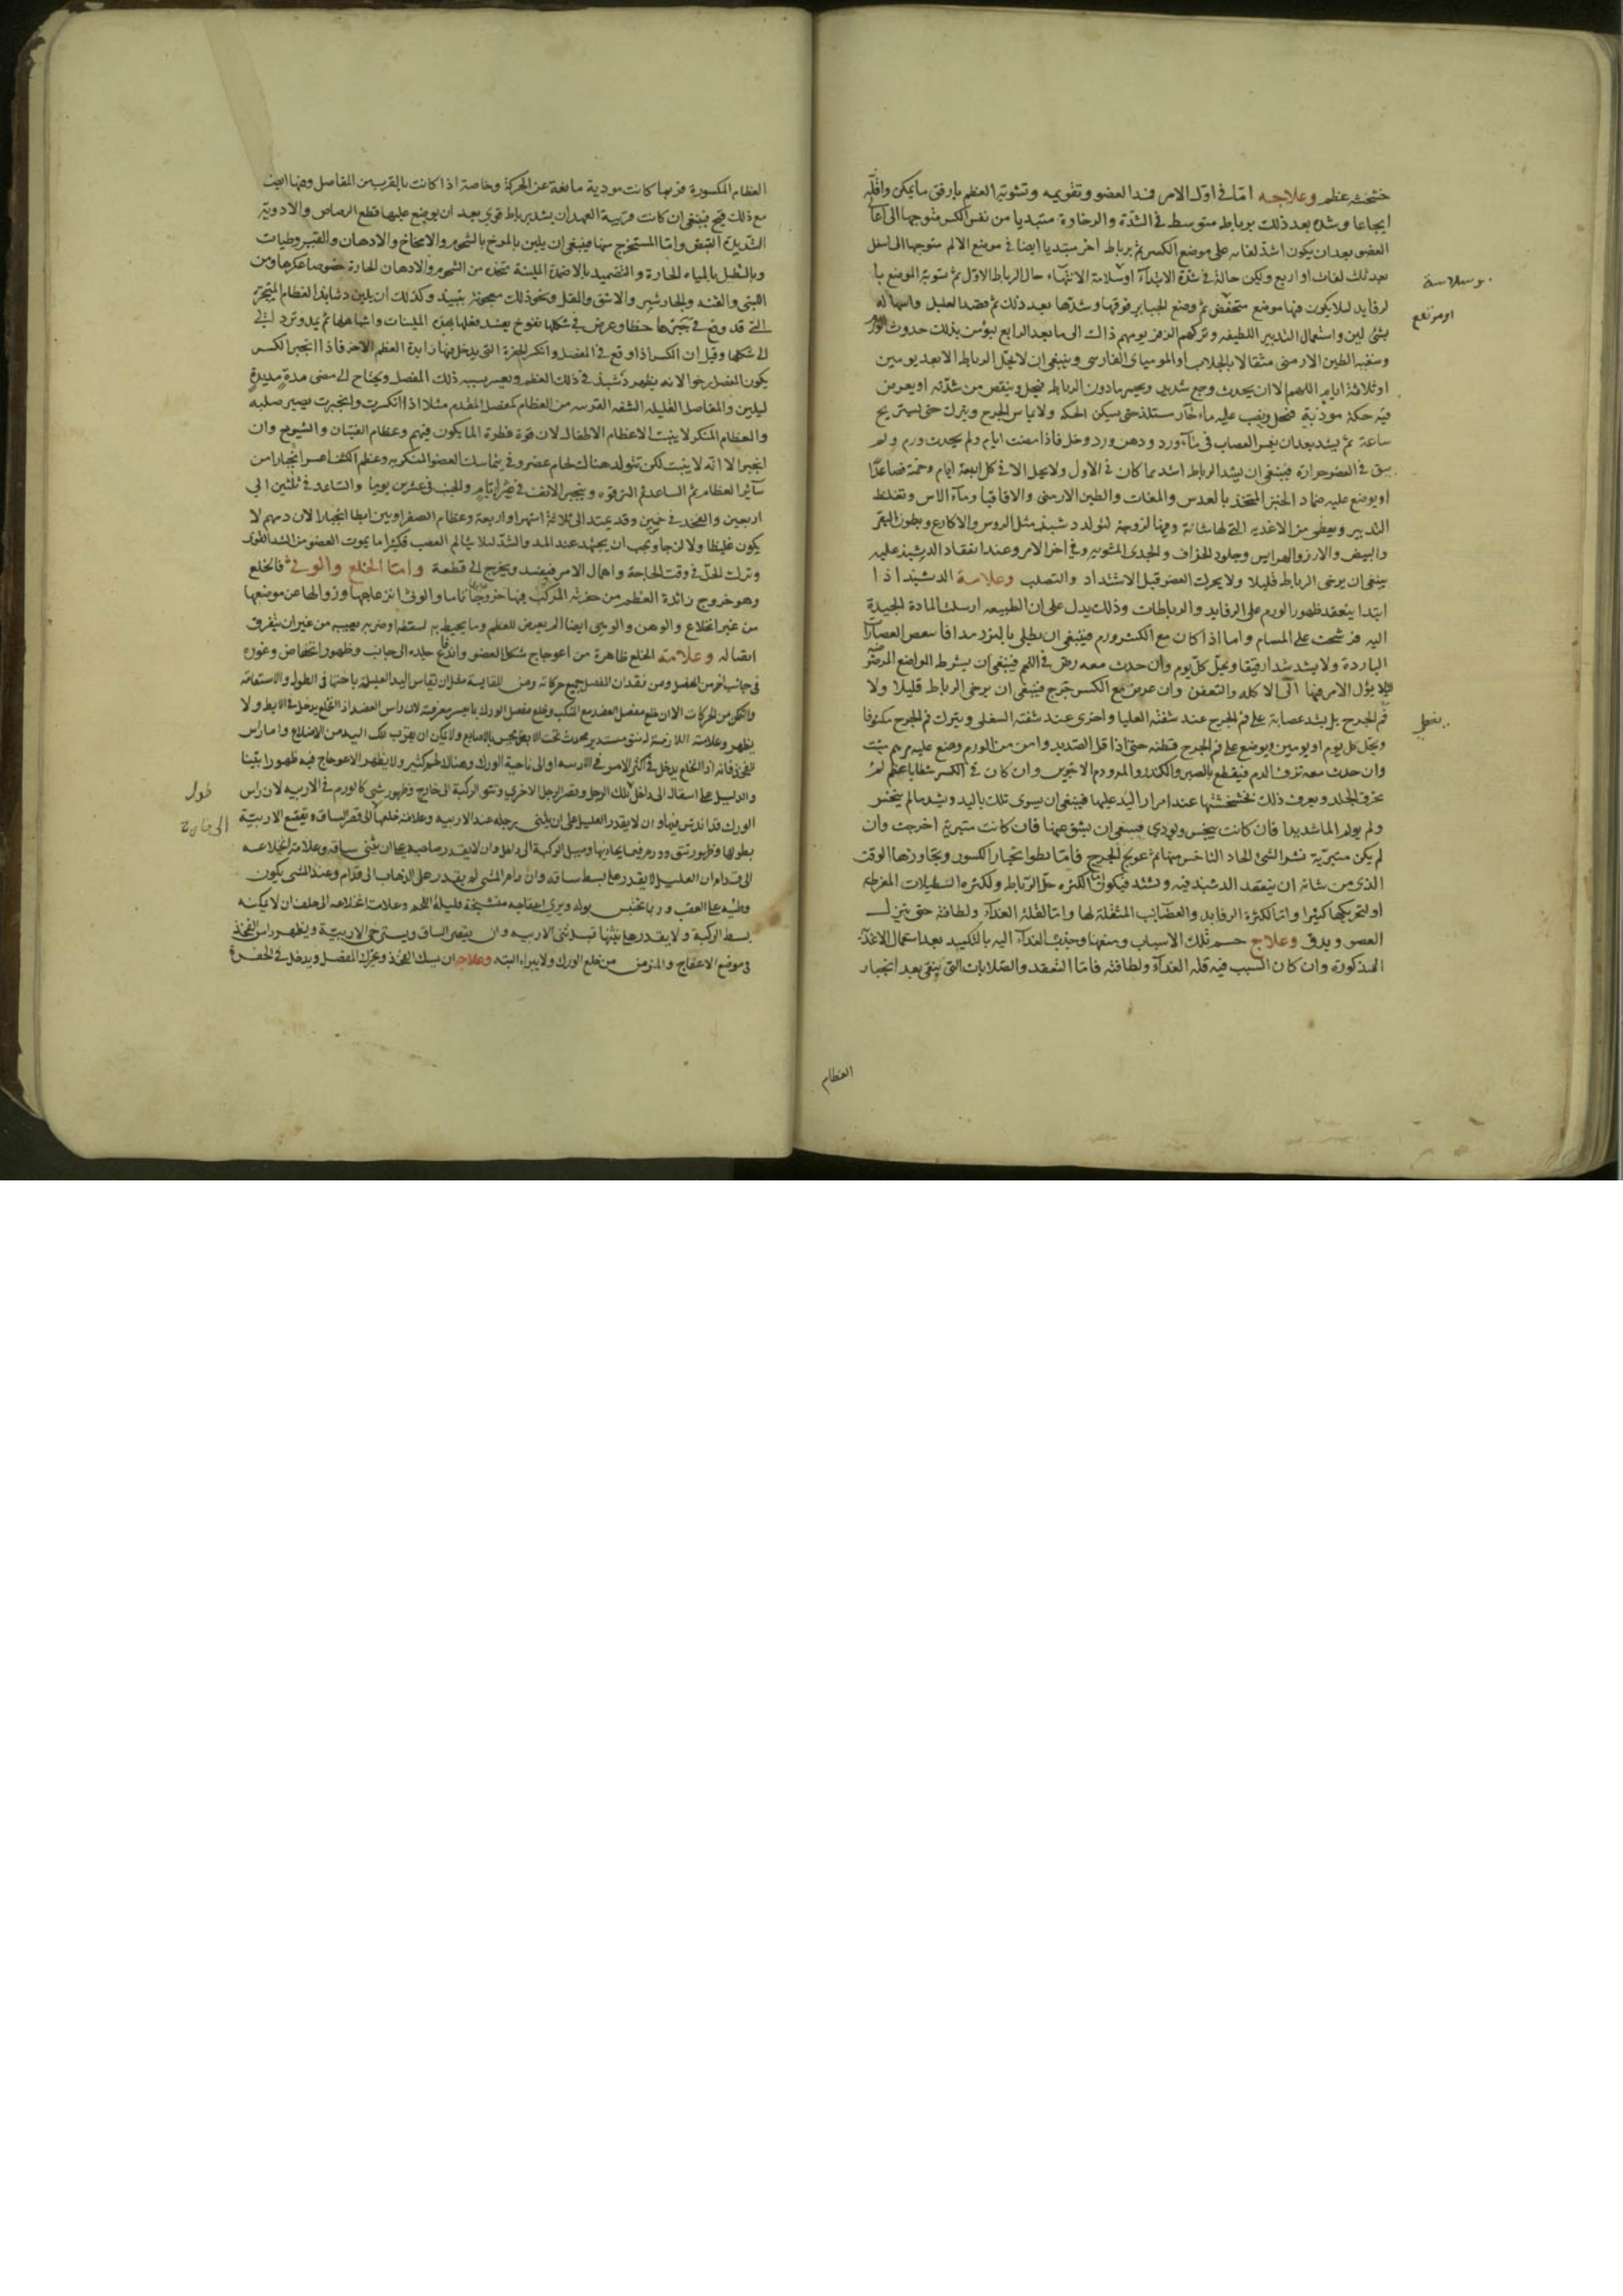 خشخشة عظم وعلاجه اما في اول الامر فمد العضو وتقويمه وتسوية العظم بارفق مايمكن واقله
ايجاعا وشده بعد ذلك برباط متوسط في الشدة والرخاوة مبتديا من نفس الكسر متوجها الى اعا
العضو بعد ان يكون اشد لفاته على موضع الكسر ثم برباط اخر مبتديا ايضا في موضع الالم متوجها الى اسفل
بعد ثلث لفات او اربع وليكن حاله في شدة الابتدآ وسلامة الانتهآء حال الرباط الاول ثم تسوية الموضع با
لرفايد ليلا يكون فيها موضع منخفض ثم وضع الجباير فوقها وشدها بعد ذلك ثم فصد العليل واسهاله
بشئ لين واستعمال التدبير اللطيف وتركهم الزفر يومهم ذاك الى مابعد الرابع ليؤمن بذلك حدوث الورم
وسقيه الطين الارمنى مثقالا بالجلاب او الموميا الفارسى وينبغى ان لا يحل الرباط الا بعد يومين
او ثلاثة ايام اللهم الا ان يحدث وجع شديد فيحل وينقص من شدته او يعرض
فيه حكة موذية فيحل ويصب عليه ماء حار ستلذ حتى يسكن الحكة ولا يماس الجرح ويترك حتى يستريح
ساعة ثم يشد بعد ان يغمر العصاب في مآء ورد ودهن ورد وخل فاذا مضت ايام ولم يحدث ورم ولم
يبق في العضو حرارة فينبغى ان يشد الرباط اشد مما كان في الاول ولا يحل الا في كل اربعة ايام وخمسة فصاعدا
او يوضع عليه ضماد الخبز المتخذ بالعدس والمغاث والطين الارمنى والاقاقيا ومآء الاس وتغلظ
التدبير ويعطى من الاغذية التي لها متانة وفيها لزوجة لتولد دشبذ مثل الروس والاكارع وبطون البقر
والبيض والارز والهرايس وجلود الخراف والجدى المشوية وفي اخر الامر وعند انعقاد الدشبذ عليه
ينبغى ان يرخى الرباط قليلا ولا يحرك العضو قبل الاشتداد والتصلب وعلامة الدشبذ اذا
ابتدا ينعقد ظهور الورم على الرفايد والرباطات وذلك يدل على ان الطبيعة ارسلت المادة الجيدة
اليه فرشحت على المسام واما اذا كان مع الكسر ورم فينبغى ان يطلى بالمبرد مدافا ببعض العصارآ
الباردة ولا يشد شدا رفيقا ويحل كل يوم وان حدث معه رض في اللحم فينبغى ان يشرط المواضع المرضة
ليلا يؤل الامر فيها الى الاكلة والتعفن وان عرض مع الكسر جرح فينبغى ان يرخى الرباط قليلا ولا
فم الجرح بل يشد عصابة على فم الجرح عند شفته العليا واخرى عند شفته السفلى ويترك فم الجرح مكشوفا
ويحل كل يوم او يومين ويوضع على فم الجرح قطنه حتى اذا قل الصديد وامن من الورم وضع عليه مرهم منبت
وان حدث معه نزف الدم فيقطع بالصبر والكندر والمر ودم الاخوين وان كان في الكسر شظايا عظم لم
يخرق الجلد ويعرف ذلك بخشخشتها عند امرار اليد عليها فينبغى ان يسوى تلك باليد ويشد مالم ينخس
ولم يولم الما شديدا فان كانت ينخس وتوذي فينبغى ان يشق عنها فان كانت متبرية اخرجت وان
لم يكن متبرية نشر الشئ الحاد الناخس منها ثم عولج الجرح فاما بطوا انجبار الكسور وتجاوزها الوقت
الذى من شانه ان ينعقد الدشبذ فيه ويشتد فيكون اما لكثرة حل الرباط ولكثرة التنطيلات المفرطة
او لتحريكها كثيرا واما لكثرة الرفايد والعصايب المثقلة لها واما لقلة الغذآء ولطافته حتى يهزل
العضو ويدق وعلاج حسم تلك الاسباب ومنعها وجذب الغذآء اليه بالتكميد بعد استعمال الاغذية
المذكورة وان كان السبب فيه قلة الغذآء ولطافته فاما التعقد والصلابات التى يبقى بعد انجبار
او مرتفع
العظام
العظام المكسورة فربما كانت موذية مانعة عن الحركة وخاصة اذا كانت بالقرب من المفاصل
مع ذلك قبح فينبغى ان كانت قريبة العهد ان يشد برباط قوي بعد ان يوضع عليها قطع الرصاص والادوية
الشديدة القبض واما المستخرج منها فينبغى ان يلين بالمروخ بالشحوم والامخاخ والادهان والقيروطيات
وبالتنطيل بالمياه الحارة والتضميد بالاضمدة الملينة تتخذ من الشحوم والادهان الحارة خصوصا عكرها ومن
اللبنى والقنه والجاوشير والاشق والمقل ونحو ذلك معجونة بنبيذ وكذلك ان يلين دشابذ العظام المتحجرة
التى قد وقع في جبرها خطا وعرض في شكلها تعوج يضمد فعلها بهذه الملينات واشباهها ثم يمد وترد
الى شكلها وقيل ان الكسر اذا وقع في المفصل وانكسر الحفرة التى يدخل فيها زايدة العظم الاخر فاذا انجبر الكسر
يكون المفصل رخوا لانه يظهر دشبذ في ذلك العظم ويعسر بسببه ذلك المفصل ويحتاج الى مضى مدة مديدة
ليلين والمفاصل القليلة الشفه القريبه من العظام كمفصل المقدم مثلا اذا انكسرت وانجبرت يصير صلبه
والعظام المنكسر لا ينبت الا عظام الاطفال لان قوة فطرة انما يكون فيهم وعظام الفتيان والشيوخ وان
انجبر الا انه لا ينبت لكن تتولد هناك لحام غضروفي
سآئر العظام ثم الساعد ثم الترقوة وينجبر الانف في عشرة ايام والجنب في عشرين يوما والساعد في ثلثين الى
اربعين والفخذ في خمسين وقد يمتد الى ثلاثة اشهر او اربعة وعظام الصفراويين ابطا انجبارا لان دمهم لا
يكون غليظا ولا لزجا ويجب ان يجتهد عند المد والشد ليلا ينالم العصب فكثيرا ما يموت العضو من الشد القوى
وترك الحل في وقت الحاجة واهمال الامر فيفسد ويخرج الى قطعه واما الخلع والوثى فالخلع
وهو خروج زائدة العظم من حفرته المركب فيها خروجا تاما والوثى انزعاجها وزوالها عن موضعها
من غير انخلاع والوهن والوثى ايضا الم يعرض للعظم وما يحيط به لسقطة او ضربة يصيبه من غير ان يتفرق
اتصاله وعلامة الخلع ظاهرة من اعوجاج شكل العضو واندفاع جلده الى جانب وظهور انخفاض وغوره
في جانب اخر من المفصل ومن فقدان المفصل جميع حركاته ومن المقايسة مثل ان تقاس اليد العليلة باختها في الطول والاستقامة
والتمكن من الحركات الا ان خلع مفصل العضد مع المنكب وخلع مفصل الورك مما يعسر معرفته لان راس العضد اذا انخلع يدخل في الابط ولا
يظهر وعلامته اللازمة له نتو مستدير يحدث تحت الابط يحس بالاصابع ولا يمكن ان يقرب تلك اليد من الاضلاع واما راس
الفخذ فانه اذا انخلع يدخل في اكثر الامر في الاربيه او الى ناحية الورك وهناك لحم كثير ولا يظهر الاعوجاج فيه ظهورا بينا
والدليل على اسقاله الى داخل تلك الرجل وقصر الرجل الاخرى ونتو الركبة الى خارج وظهور شى كالورم في الاربيه لان راس
الورك قد اندس فيها وان لا يقدر العليل على ان يثنى رجله عند الاربيه وعلامة خلعها الى قصر الساق وتقعع الاربية
بطولها وظهور نتو وورم فيما يحاذيها وميل الركبة الى داخل وان لا يقدر صاحبه على ان يثنى ساقه وعلامة انخلاعه
الى قدام ان العليل لا يقدر على بسط ساقه وان رام المشى لم يقدر على الذهاب الى قدام وعند المشى يكون
وطيه على العقب وربما يحتبس بوله ويرى اعفاجه متشنجة قليلة اللحم وعلامت انخلاعه الى خلف ان لا يمكنه
بسط الركبة ولا يقدر على ثنيها قبل ثنى الاربيه وان يقصر الساق ويسترخى الاربية ويظهر راس الفخذ
في موضع الاعفاج والمزمن من خلع الورك ولا يبراء البته وعلاجه ان يمسك الفخذ ويحرك المفصل ويدخل في الحفرة
طول